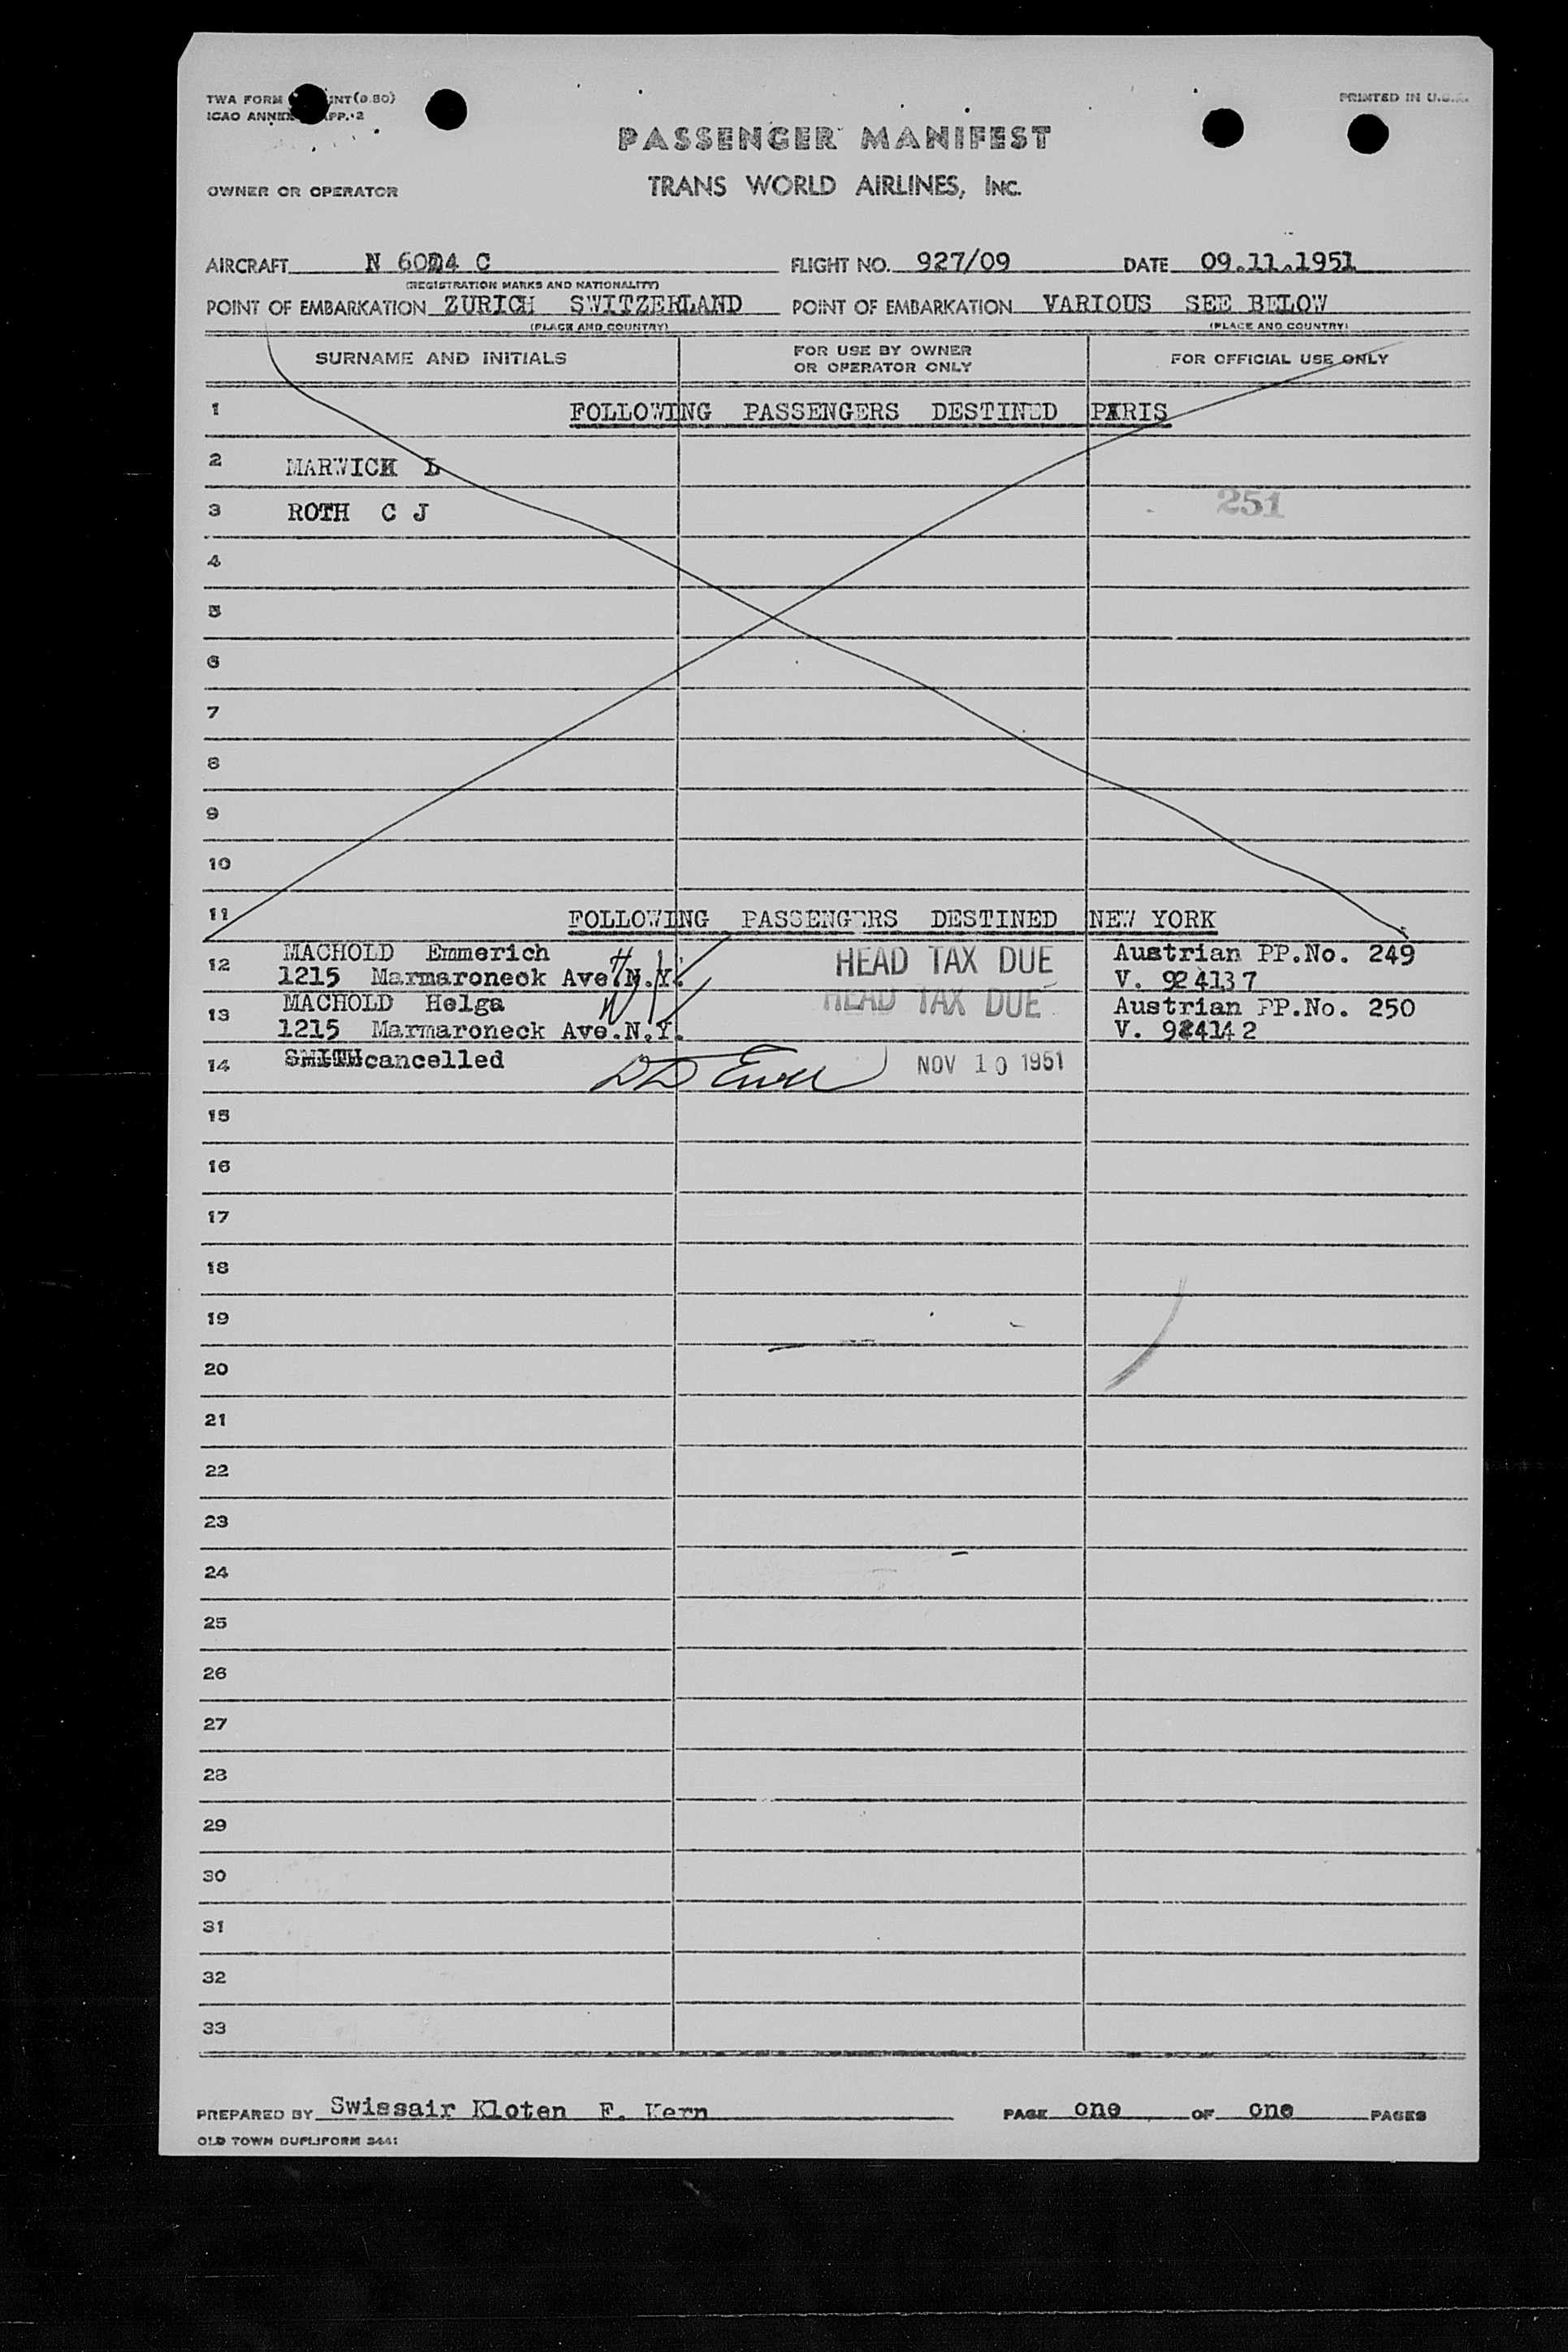 TWA FORM INT(9.50)
ICAO ANNEX APP. 2
PRINTED IN U.S.A.
PASSENGER MANIFEST
OWNER OR OPERATOR
TRANS WORLD AIRLINES, INC.
AIRCRAFT N 6004 C FLIGHT NO. 927/09 DATE 09.11.1951
(REGISTRATION MARKS AND NATIONALITY)
POINT OF EMBARKATION ZURICH SWITZERLAND POINT OF EMBARKATION VARIOUS SEE BELOW
(PLACE AND COUNTRY) (PLACE AND COUNTRY)
SURNAME AND INITIALS
FOR USE BY OWNER
OR OPERATOR ONLY
FOR OFFICIAL USE ONLY
1 FOLLOWING PASSENGERS DESTINED PARIS
2 MARWICK L
3 ROTH C J 251
4
5
6
7
8
9
10
11 FOLLOWING PASSENGERS DESTINED NEW YORK
12 MACHOLD Emmerich HEAD TAX DUE Austrian PP.No. 249
1215 Marmaroneck Ave.N.Y. V. 924137
13 MACHOLD Helga HEAD TAX DUE Austrian PP.No. 250
1215 Marmaroneck Ave.N.Y. V. 924142
14 SMITH cancelled NOV 10 1951
15
16
17
18
19
20
21
22
23
24
25
26
27
28
29
30
31
32
33
PREPARED BY Swissair Kloten F. Kern PAGE one OF one PAGES
OLD TOWN DUPLIFORM 2441